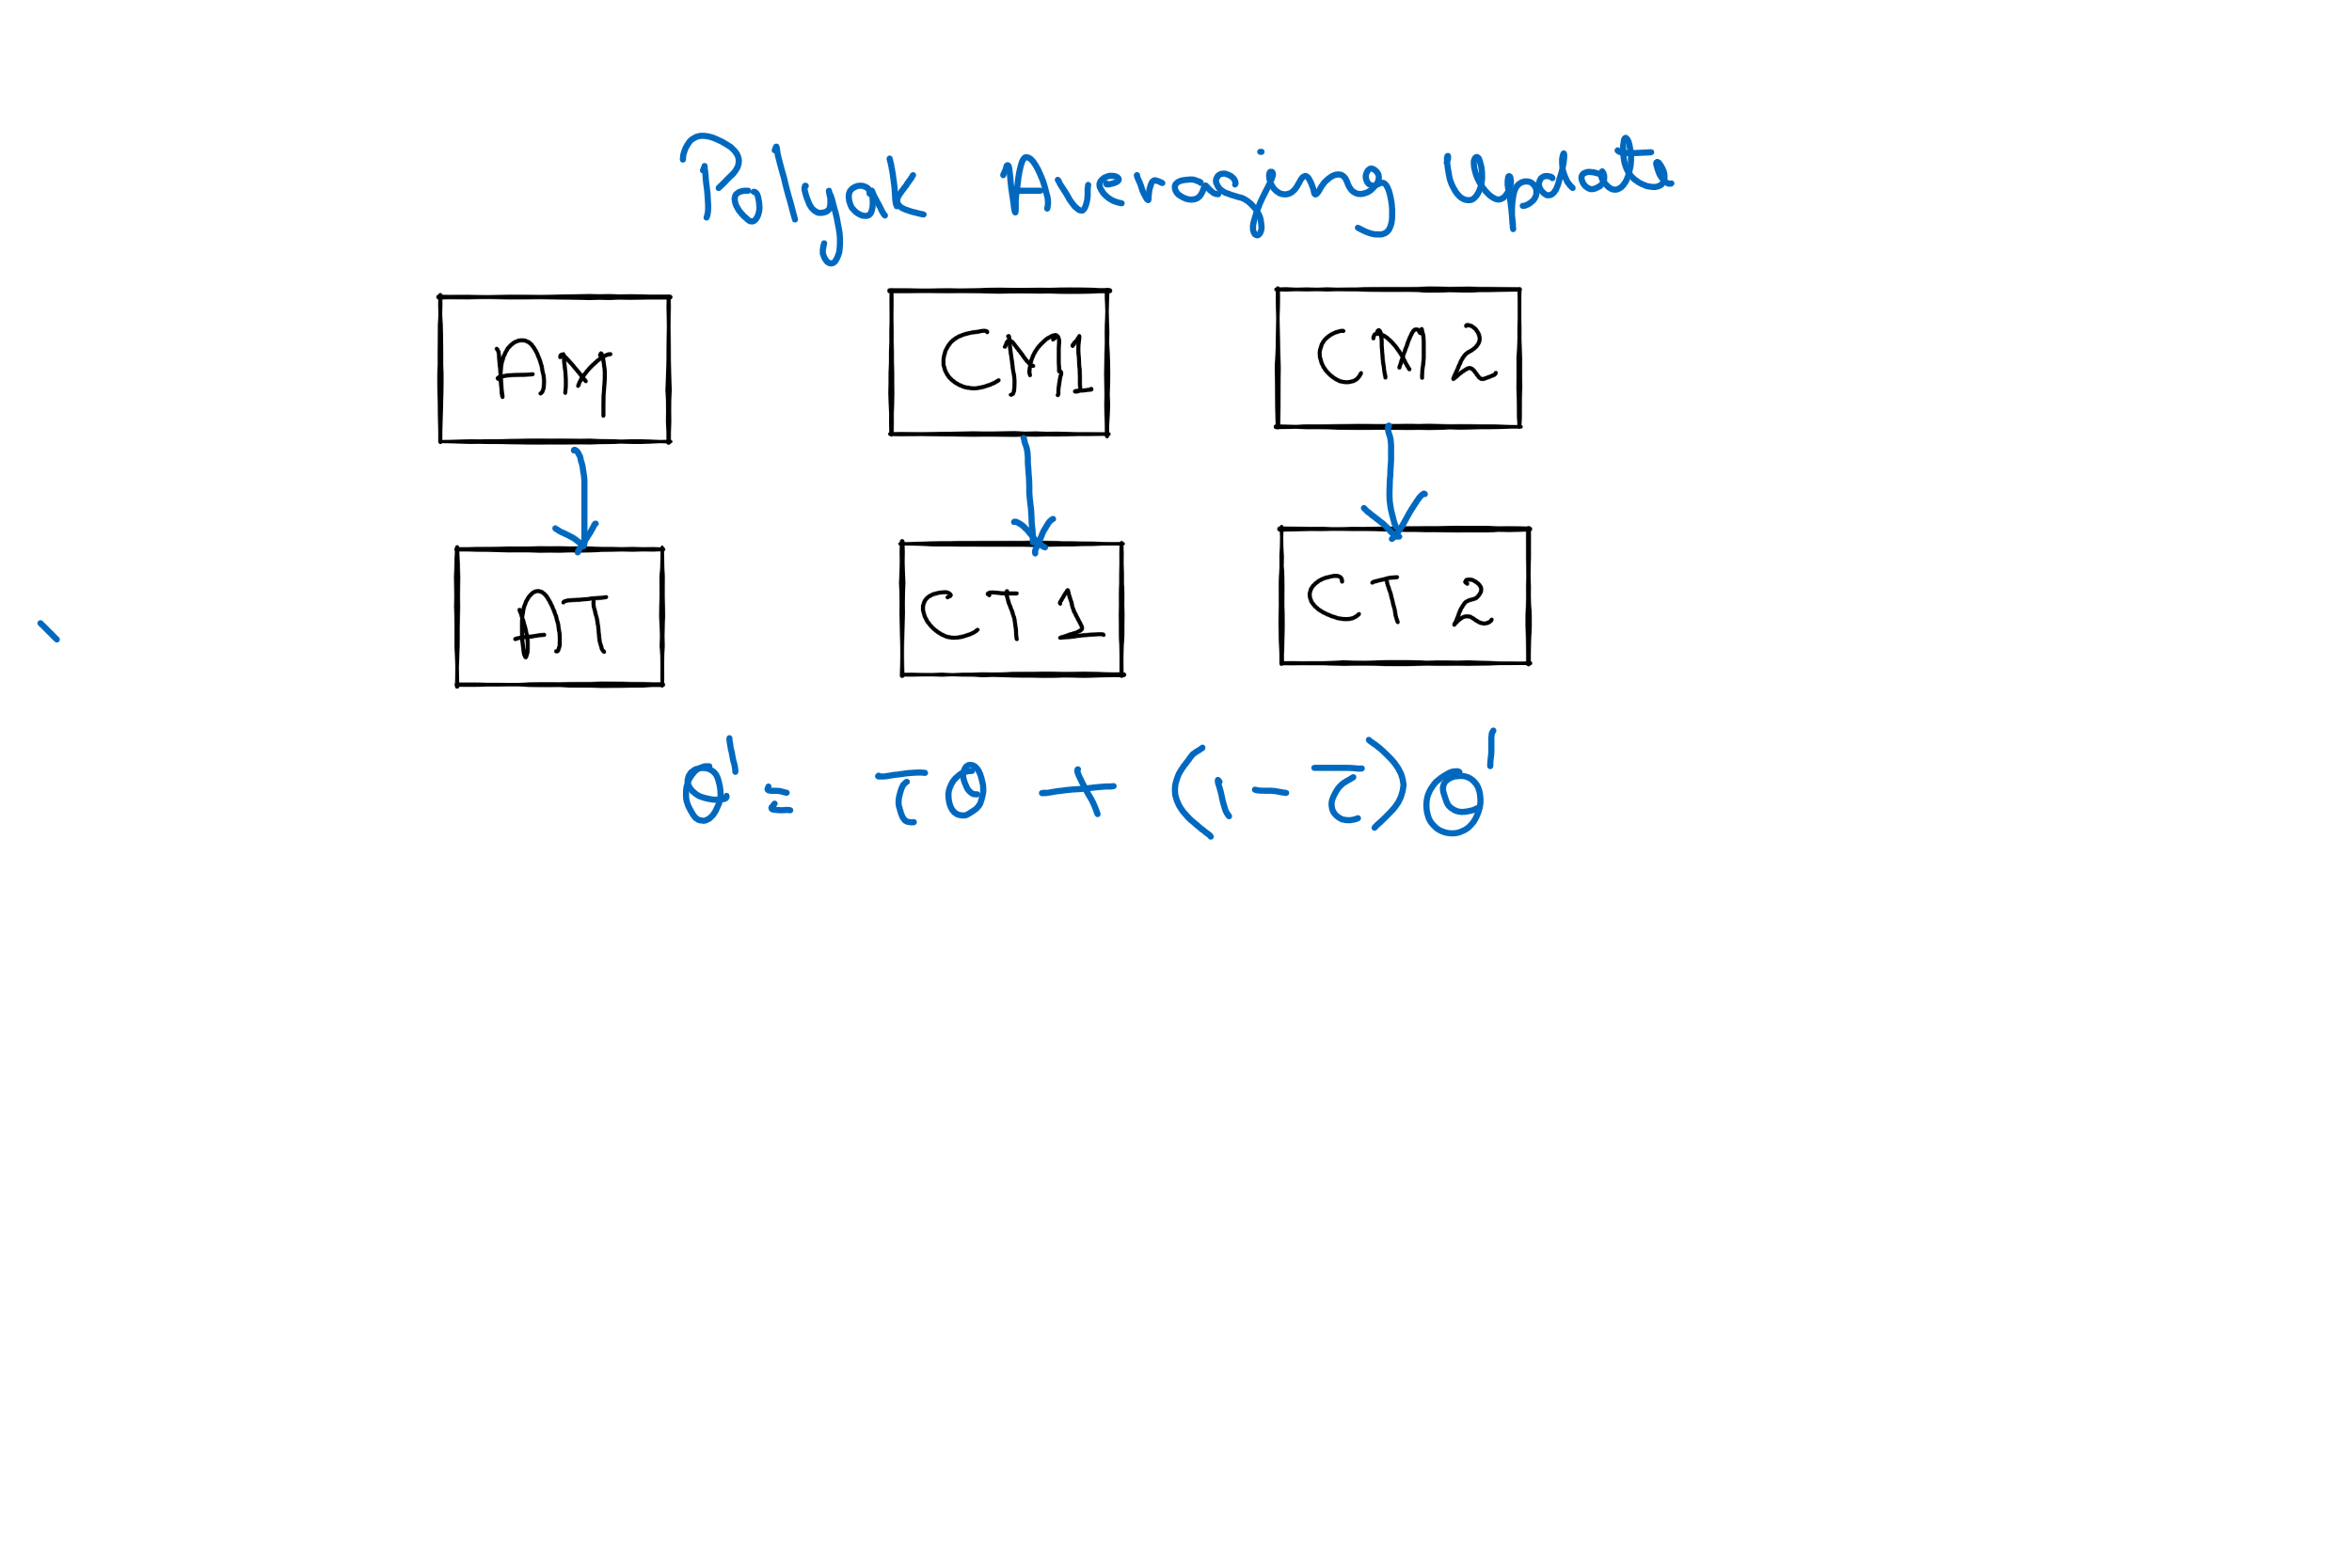 Polyak Averaging Update
AM CM1 CM2
AT CT1 CT2
θ' = τθ + (1-τ)θ'